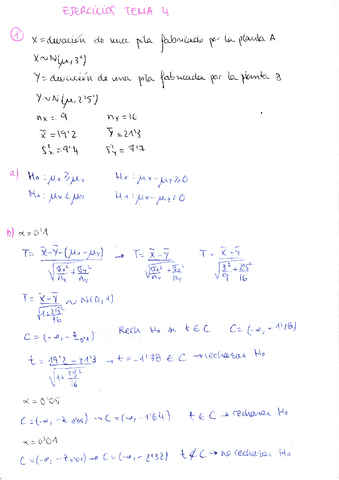 EJERCICIOS TEMA 4
① X = duración de una pila fabricada por la planta A
X~N(μ, 3²)
Y = duración de una pila fabricada por la planta B
Y~N(μ, 2'5²)
nx = 9 ny = 16
x̄ = 19'2 ȳ = 21'3
S²x = 9'4 S²y = 7'7
a) H₀: μx ≥ μy H₀: μx - μy ≥ 0
H₁: μx < μy H₁: μx - μy < 0
b) α = 0'1
T = (X̄ - Ȳ - (μx - μy)) / √(σx²/nx + σy²/ny) → T = (X̄ - Ȳ) / √(σx²/nx + σy²/ny) T = (X̄ - Ȳ) / √(3²/9 + 2'5²/16)
T = (X̄ - Ȳ) / √(1 + 2'5²/16) ~ N(0, 1)
C = (-∞, -z₀'₁) Rech H₀ si t ∈ C C = (-∞, -1'28)
t = (19'2 - 21'3) / √(1 + 2'5²/16) → t = -1'78 ∈ C → rechazar H₀
α = 0'05
C = (-∞, -z₀'₀₅) → C = (-∞, -1'64) t ∈ C → rechazar H₀
α = 0'01
C = (-∞, -z₀'₀₁) → C = (-∞, -2'32) t ∉ C → no rechazar H₀